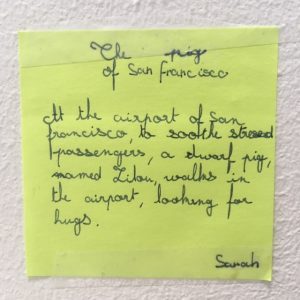 The pig
of San Francisco
At the airport of San
francisco, to soothe stressed
passengers, a dwarf pig,
named Lilou, walks in
the airport, looking for
hugs.
Sarah